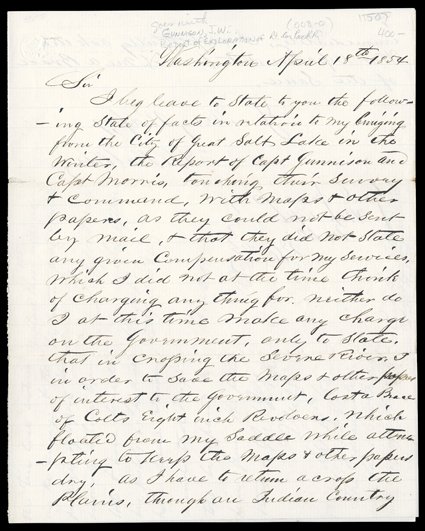 GUNNISON, J.W.
Washington April 18th 1854
Sir
I beg leave to State to you the follow-
-ing State of facts in relation to my bringing
from the City of Great Salt Lake in the
Winter, the Report of Capt Gunnison and
Capt Morris, touching their Survey
& Command, With Maps & other
papers, as they could not be Sent
by Mail, & that they did Not State
any given Compensation for my Services,
Which I did not at the time think
of Charging any thing for, neither do
I at this time Make any Charge
on the Government, only to State,
that in Crossing the Severe River, &
in order to Save the Maps & other papers
of interest to the Government, lost a Brace
of Colts Eight inch Revolvers. Which
floated from my Saddle While attem
-pting to Keep the Maps & other papers
dry, as I have to return across the
Plains, through an Indian Country